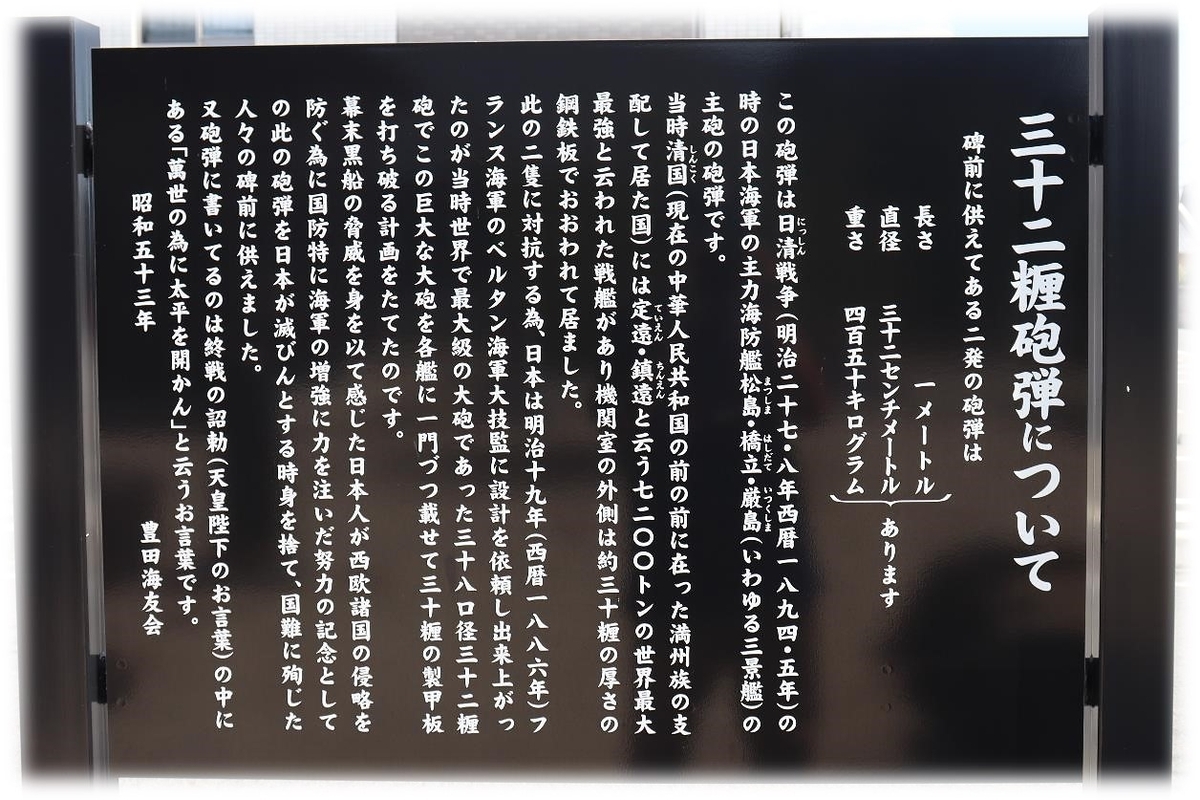 三十二糎砲弾について
碑前に供えてある二発の砲弾は
長さ 一メートル
直径 三十二センチメートル
重さ 四百五十キログラム
あります
この砲弾は日清戦争(明治二十七・八年西暦一八九四・五年)の
時の日本海軍の主力海防艦松島・橋立・厳島(いわゆる三景艦)の
主砲の砲弾です。
当時清国(現在の中華人民共和国の前の前に在った満州族の支
配して居た国)には定遠・鎮遠と云う七二〇〇トンの世界最大
最強と云われた戦艦があり機関室の外側は約三十糎の厚さの
鋼鉄板でおおわれて居ました。
此の二隻に対抗する為、日本は明治十九年(西暦一八八六年)フ
ランス海軍のベルタン海軍大技監に設計を依頼し出来上がっ
たのが当時世界で最大級の大砲であった三十八口径三十二糎
砲でこの巨大な大砲を各艦に一門づつ載せて三十糎の製甲板
を打ち破る計画をたてたのです。
幕末黒船の脅威を身を以て感じた日本人が西欧諸国の侵略を
防ぐ為に国防特に海軍の増強に力を注いだ努力の記念として
の此の砲弾を日本が滅びんとする時身を捨て、国難に殉じた
人々の碑前に供えました。
又砲弾に書いてるのは終戦の詔勅(天皇陛下のお言葉)の中に
ある「萬世の為に太平を開かん」と云うお言葉です。
昭和五十三年
豊田海友会